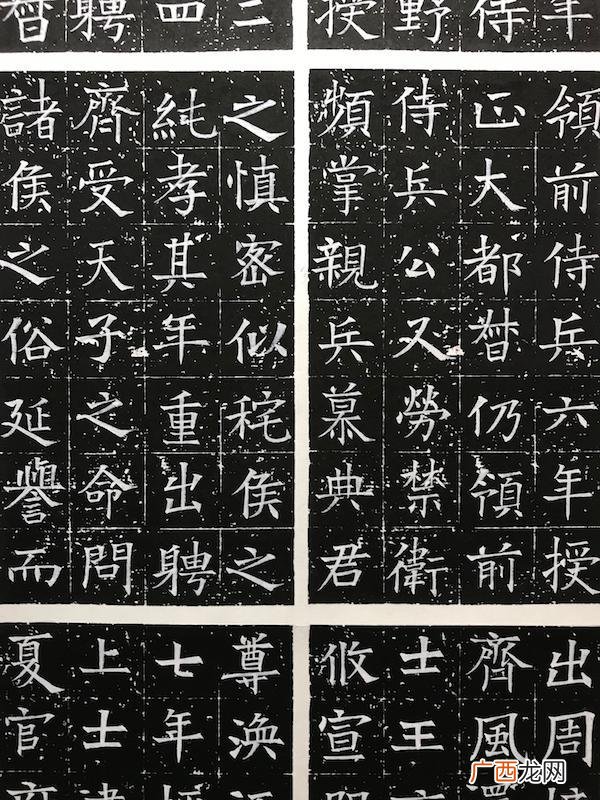 年
侍
野
授
四
聘
督
領前侍兵六年授
正大都督仍領前
侍兵公又勞禁衛
頻掌親兵慕典君
之慎密似秺侯之
純孝其年重出聘
齊受天子之命問
諸侯之俗延譽而
出周
齊風
士王
攸宣
尊渙
七年
上士
夏官
广西龙网